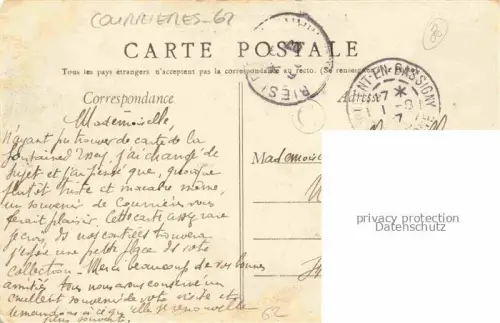 COURRIERES-62
CARTE POSTALE
Tous les pays étrangers n'acceptent pas la correspondance au recto. (Se renseigner
Correspondance
Adresse
Mademoiselle,
N'ayant pu trouver de carte de la
fontaine d'Isey, j'ai changé de
sujet et j'ai pensé que, quoique
plutôt triste et macabre même,
un souvenir de Courrières vous
ferait plaisir. Cette carte assez rare
je crois, ds nos contrées trouvera
j'espère une petite place ds votre
collection. Merci beaucoup de vos bonnes
amitiés tous nous avons conservé un
excellent souvenir de votre visite et
demandons à ce qu'elle se renouvelle
bien souvent.
Mademoise
NT-EN-BASSIGNY
privacy protection
Datenschutz
62
80